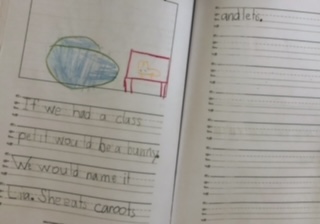 If we had a class
pet it would be a bunny.
We would name it
Lira. She eats carrots
and lete.